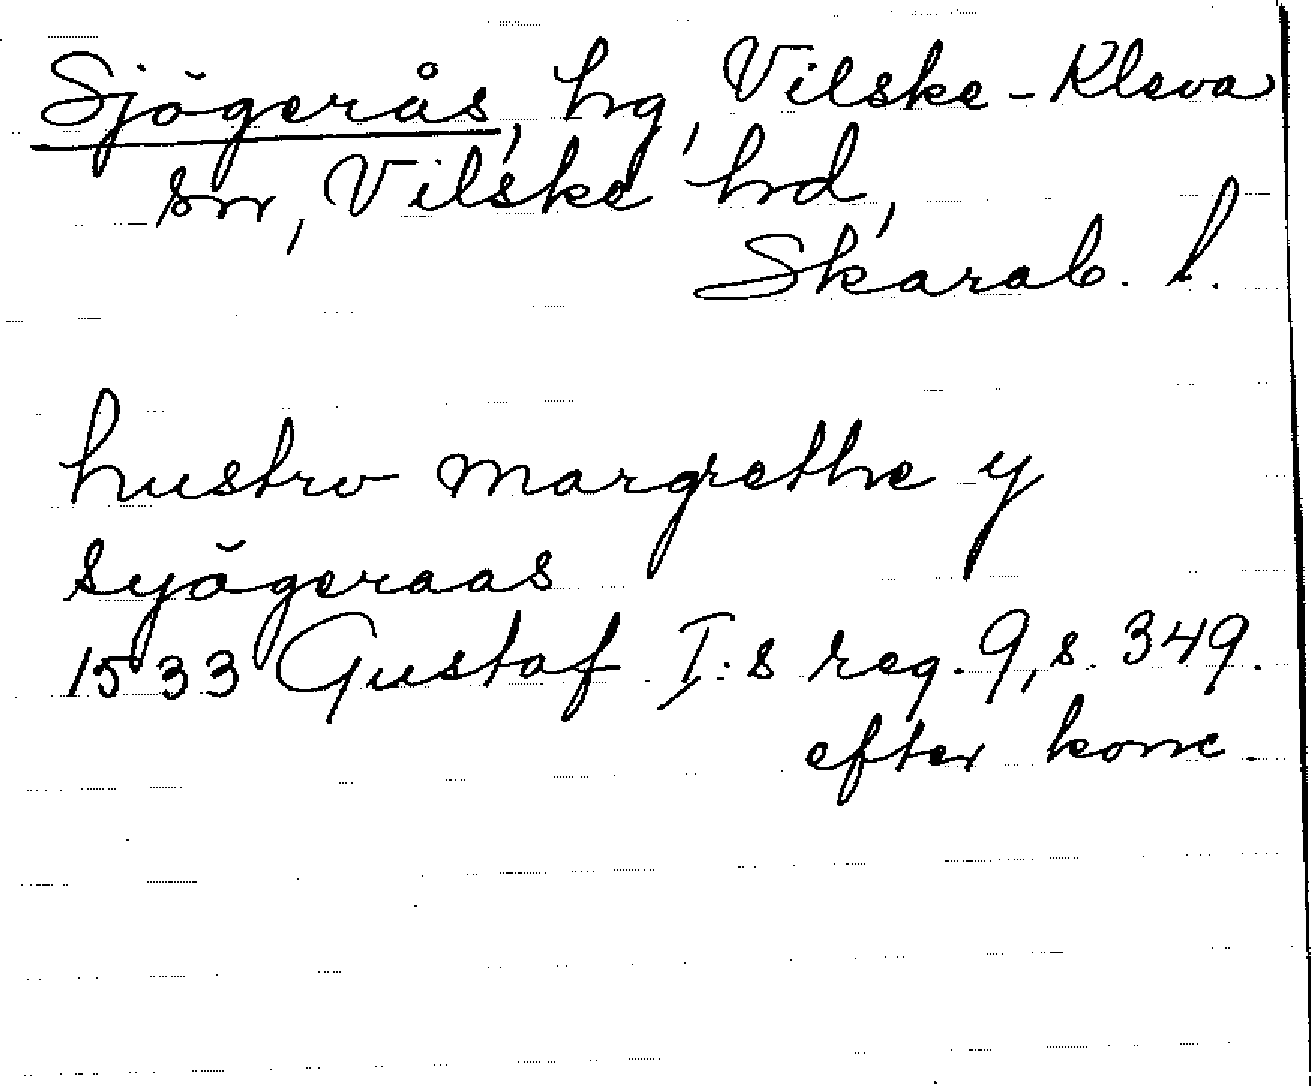 Sjögerås, hg, Vilske-Kleva
sn, Vilske hd,
Skarab. l.
hustru margrethe y
syögeraas
1533 Gustaf I:s reg. 9, s. 349.
efter konc.